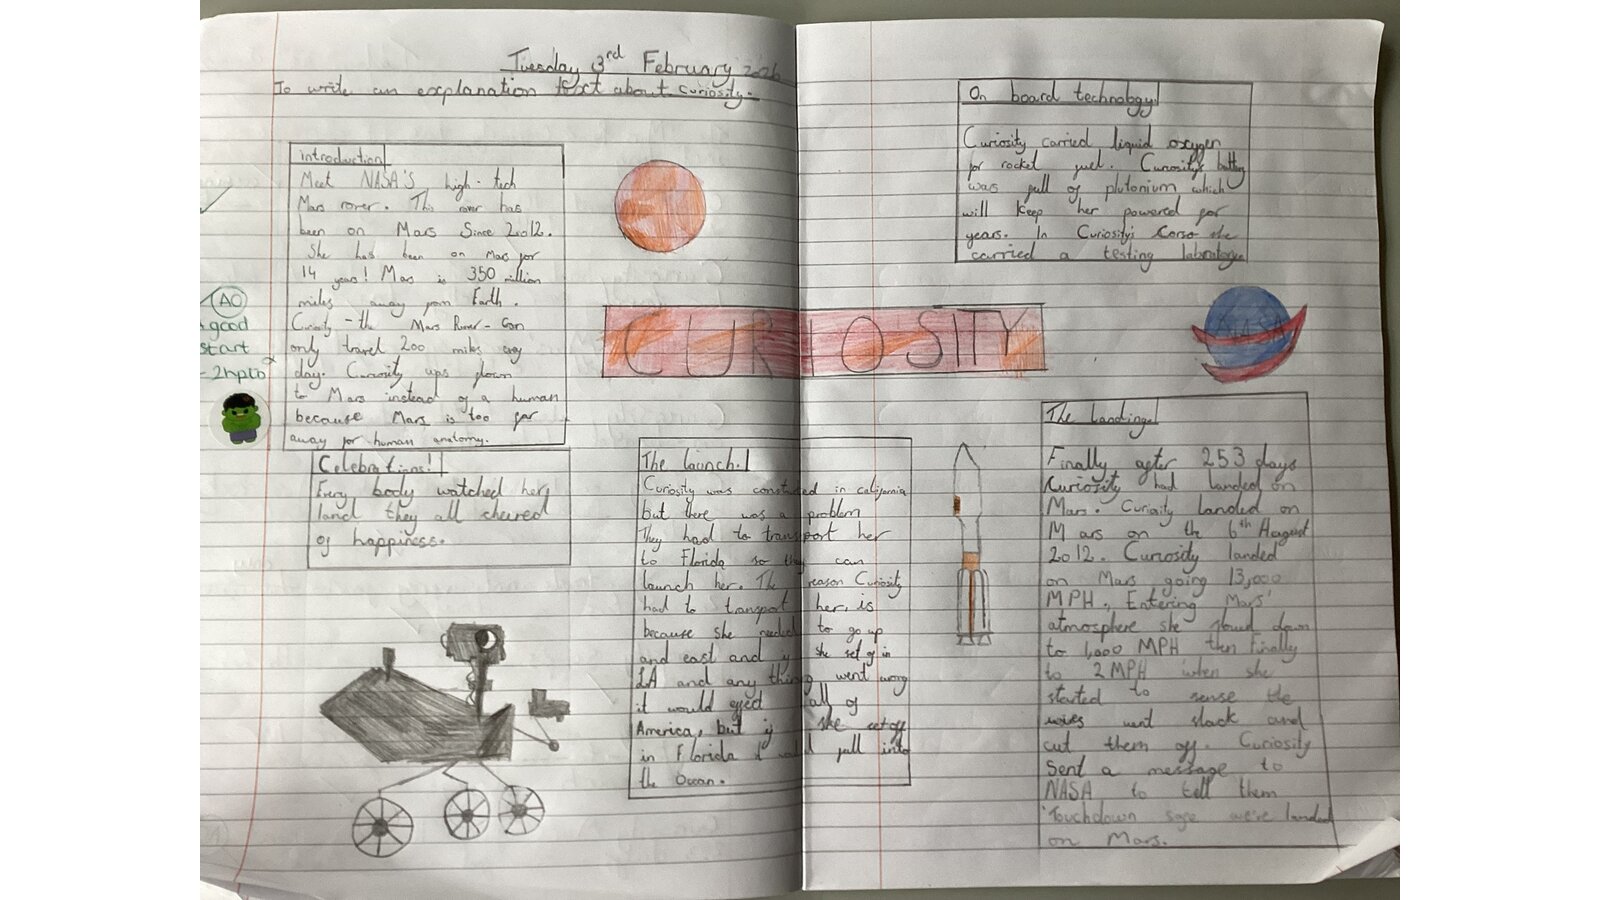 Tuesday 3rd February 2026
To write an explanation text about Curiosity.
introduction
Meet NASA'S high-tech
Mars rover. This rover has
been on Mars Since 2012.
She has been on Mars for
14 years! Mars is 350 million
miles away from Earth.
Curiosity - the Mars Rover - can
only travel 200 miles
day. Curiosity down
to Mars instead of a human
because Mars is too far
away for human anatomy.
AO
good
start
2hpts
Celebrations!
Every body watched her
land they all cheered
of happiness.
CURIOSITY
The launch!
Curiosity was in california
but there was a problem
They had to transport her
to Florida so they can
launch her. The reason Curiosity
had to transport her, is
because she needed to go up
and east and she set of in
LA and any thing went wrong
it would all of
America, but if she set off
in Florida it fall into
the Ocean.
On board technology!
Curiosity carried liquid oxygen
for rocket fuel. Curiosity's
was full of plutonium which
will keep her powered for
years. In Curiosity's she
carried a testing laboratory
NASA
The Landing!
Finally after 253 days
Curiosity had landed on
Mars. landed on
Mars on the 6th
2012. Curiosity landed
on Mars going 13,000
MPH, Entering Mars'
atmosphere she down
to 1,000 MPH then finally
to 2 MPH when she
started to sense the
wires went slack and
cut them off. Curiosity
Sent a message to
NASA to tell them
'Touchdown we're landed
on Mars.